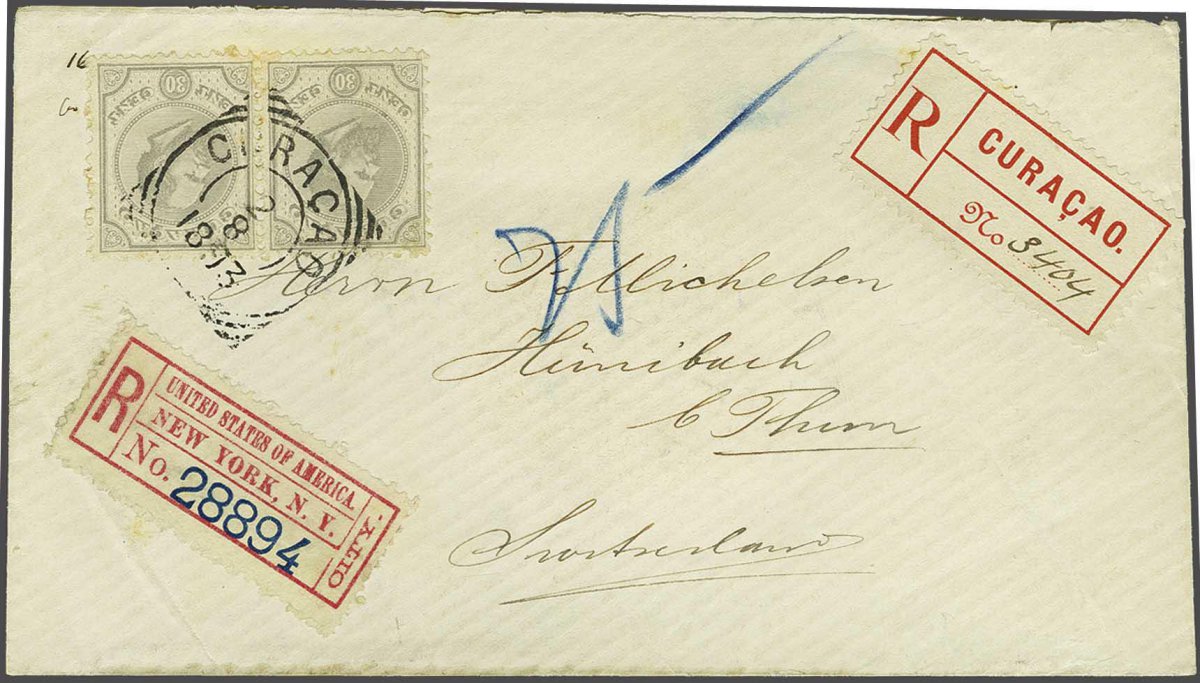 16
30
30
CURAÇAO
2
8
1893
R
CURAÇAO.
No 3404
Herrn F. Michelsen
Hünibach
b Thun
Switzerland
R
UNITED STATES OF AMERICA.
NEW YORK, N. Y.
No. 28894